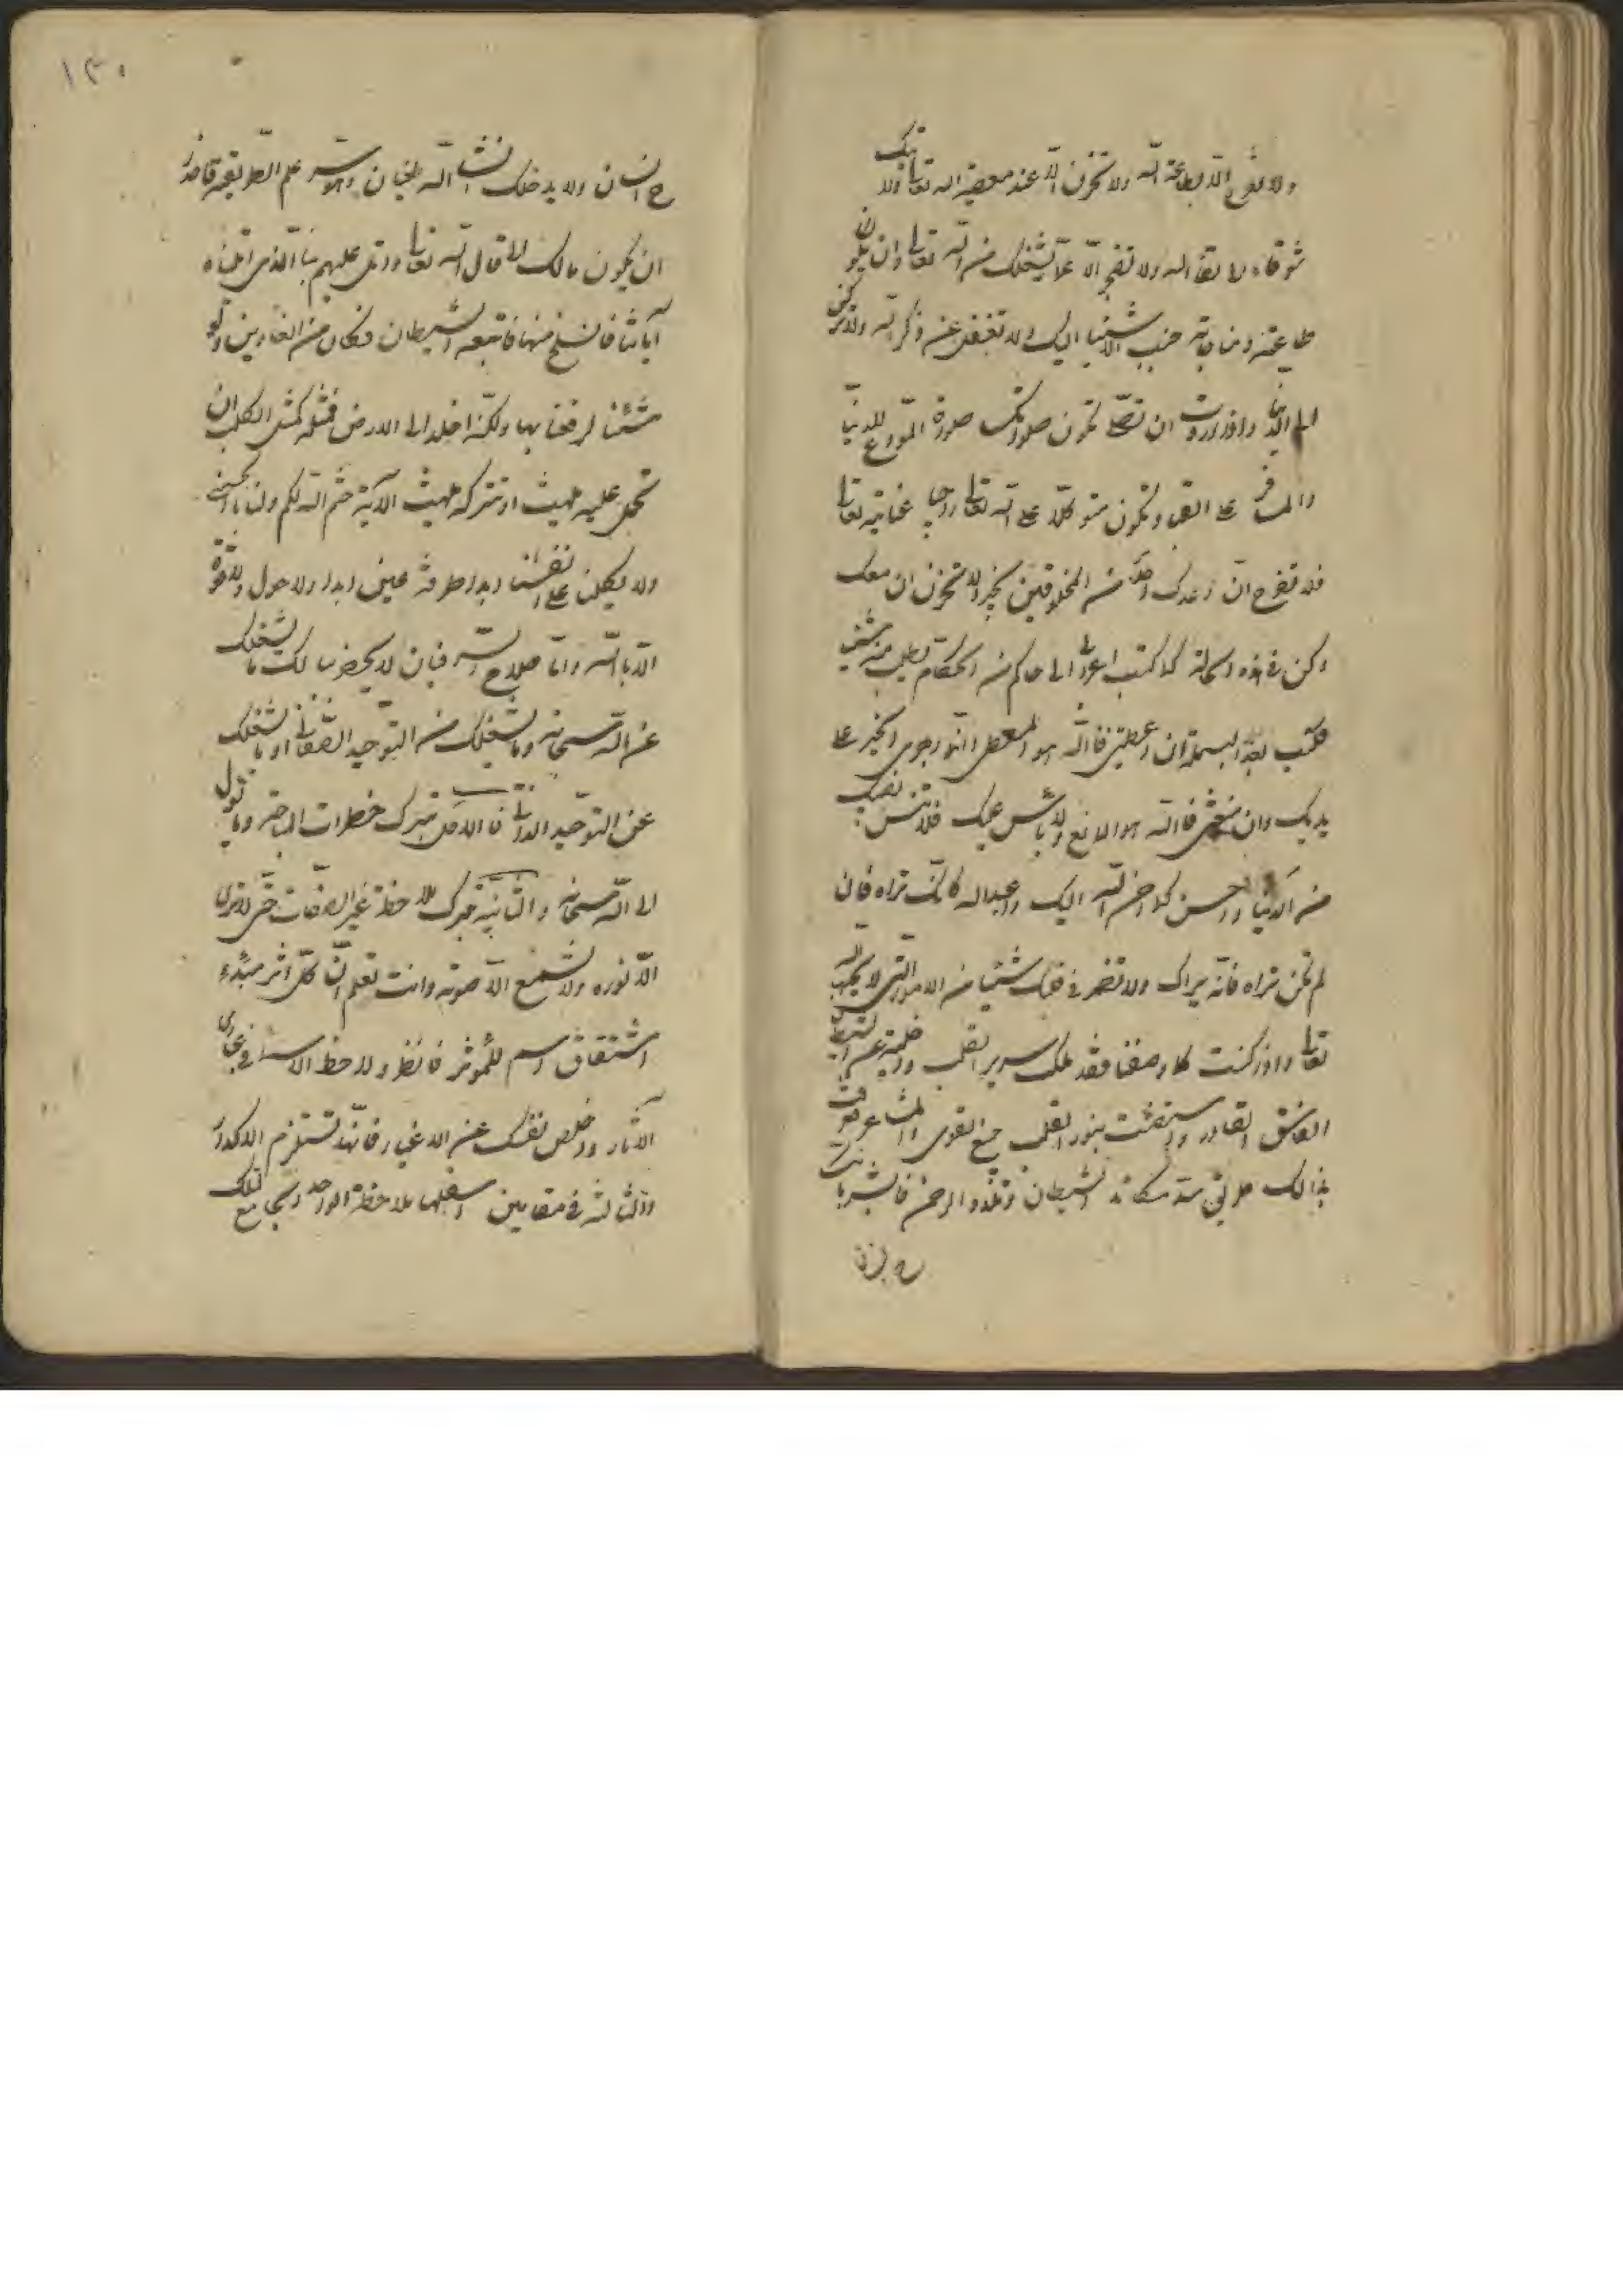 ولا تفرح الا بطاعة الله ولا تحزن الا عند معصية الله تعالى ولا تبك
شوقا الا لقاء الله ولا تضجر الا عما يشغلك من الله تعالى وان يكون
طاعته ومناجاته حبيب الاشياء اليك ولا تغفل عن ذكر الله ولا تركن
الى الدنيا واذا اردت ان تصلى تكون صلوتك صلوة المودع للدنيا
والمسافر على القبر وتكون متوكلا على الله تعالى راجيا عنايته تعالى
فلا تفرح ان وعدك احد من المخلوقين بخير ولا تحزن ان منعك
وكن فى هذه الحالة كما كتب اعرابى الى حاكم من الحكام يطلب منه شيئا
فكتب بعد البسملة ان اعطيتنى فالله هو المعطى وانه اجرى الخير على
يديك وان منعتنى فالله هو المانع ولا باس عليك فلا تنس نصيبك
من الدنيا واحسن كما احسن الله اليك واعبد الله كانك تراه فان
لم تكن تراه فانه يراك ولا تضمر فى قلبك شيئا من الامور التى لا يحبها الله
تعالى واذا كنت كما وصفنا فقد ملك سرير القلب وازلت عنه الشيطان
الفاسق الغادر واستضئت بنور القلب جميع القوى والمشاعر فوقت
بذالك طرائق مسد مكائد الشيطان وتلذه الرحمن فابشر بانك
ح انسان ولا يدخلك انشاء الله طغيان والا وتسر علم الطريقة فاحذر
ان يكون مالك كما قال الله تعالى واتل عليهم نبا الذى اتيناه
آياتنا فانسلخ منها فاتبعه الشيطان فكان من الغاوين ولو
شئنا لرفعناه بها ولكنه اخلد الى الارض فمثله كمثل الكلب ان
تحمل عليه يلهث او تتركه يلهث الآية ختم الله لكم ولنا بالحسنى
ولا يكلنا على انفسنا ابدا طرفة عين ابدا ولا حول ولا قوة
الا بالله واما صلاح السر فبان لا يحضر ببالك ما يشغلك
عن الله سبحانه وما يشغلك من التوحيد الصفاتى او ما يشغلك
عن التوحيد الذاتى فالاول بترك خطرات المباحة وما تؤول
الى الله سبحانه والثانية بترك ملاحظة غير الصفات حتى لا ترى
الا نوره ولا تسمع الا صوته وانت تعلم ان كل اثر مبدء
اشتقاق اسم للمؤثر فانظر ولاحظ الاسماء فى مجارى
الآثار واخلص نفسك عن الاغيار فانها تستلزم الاكدار
والثالثة فى مقامين اسفلها ملاحظة الواحد الجامع لتلك